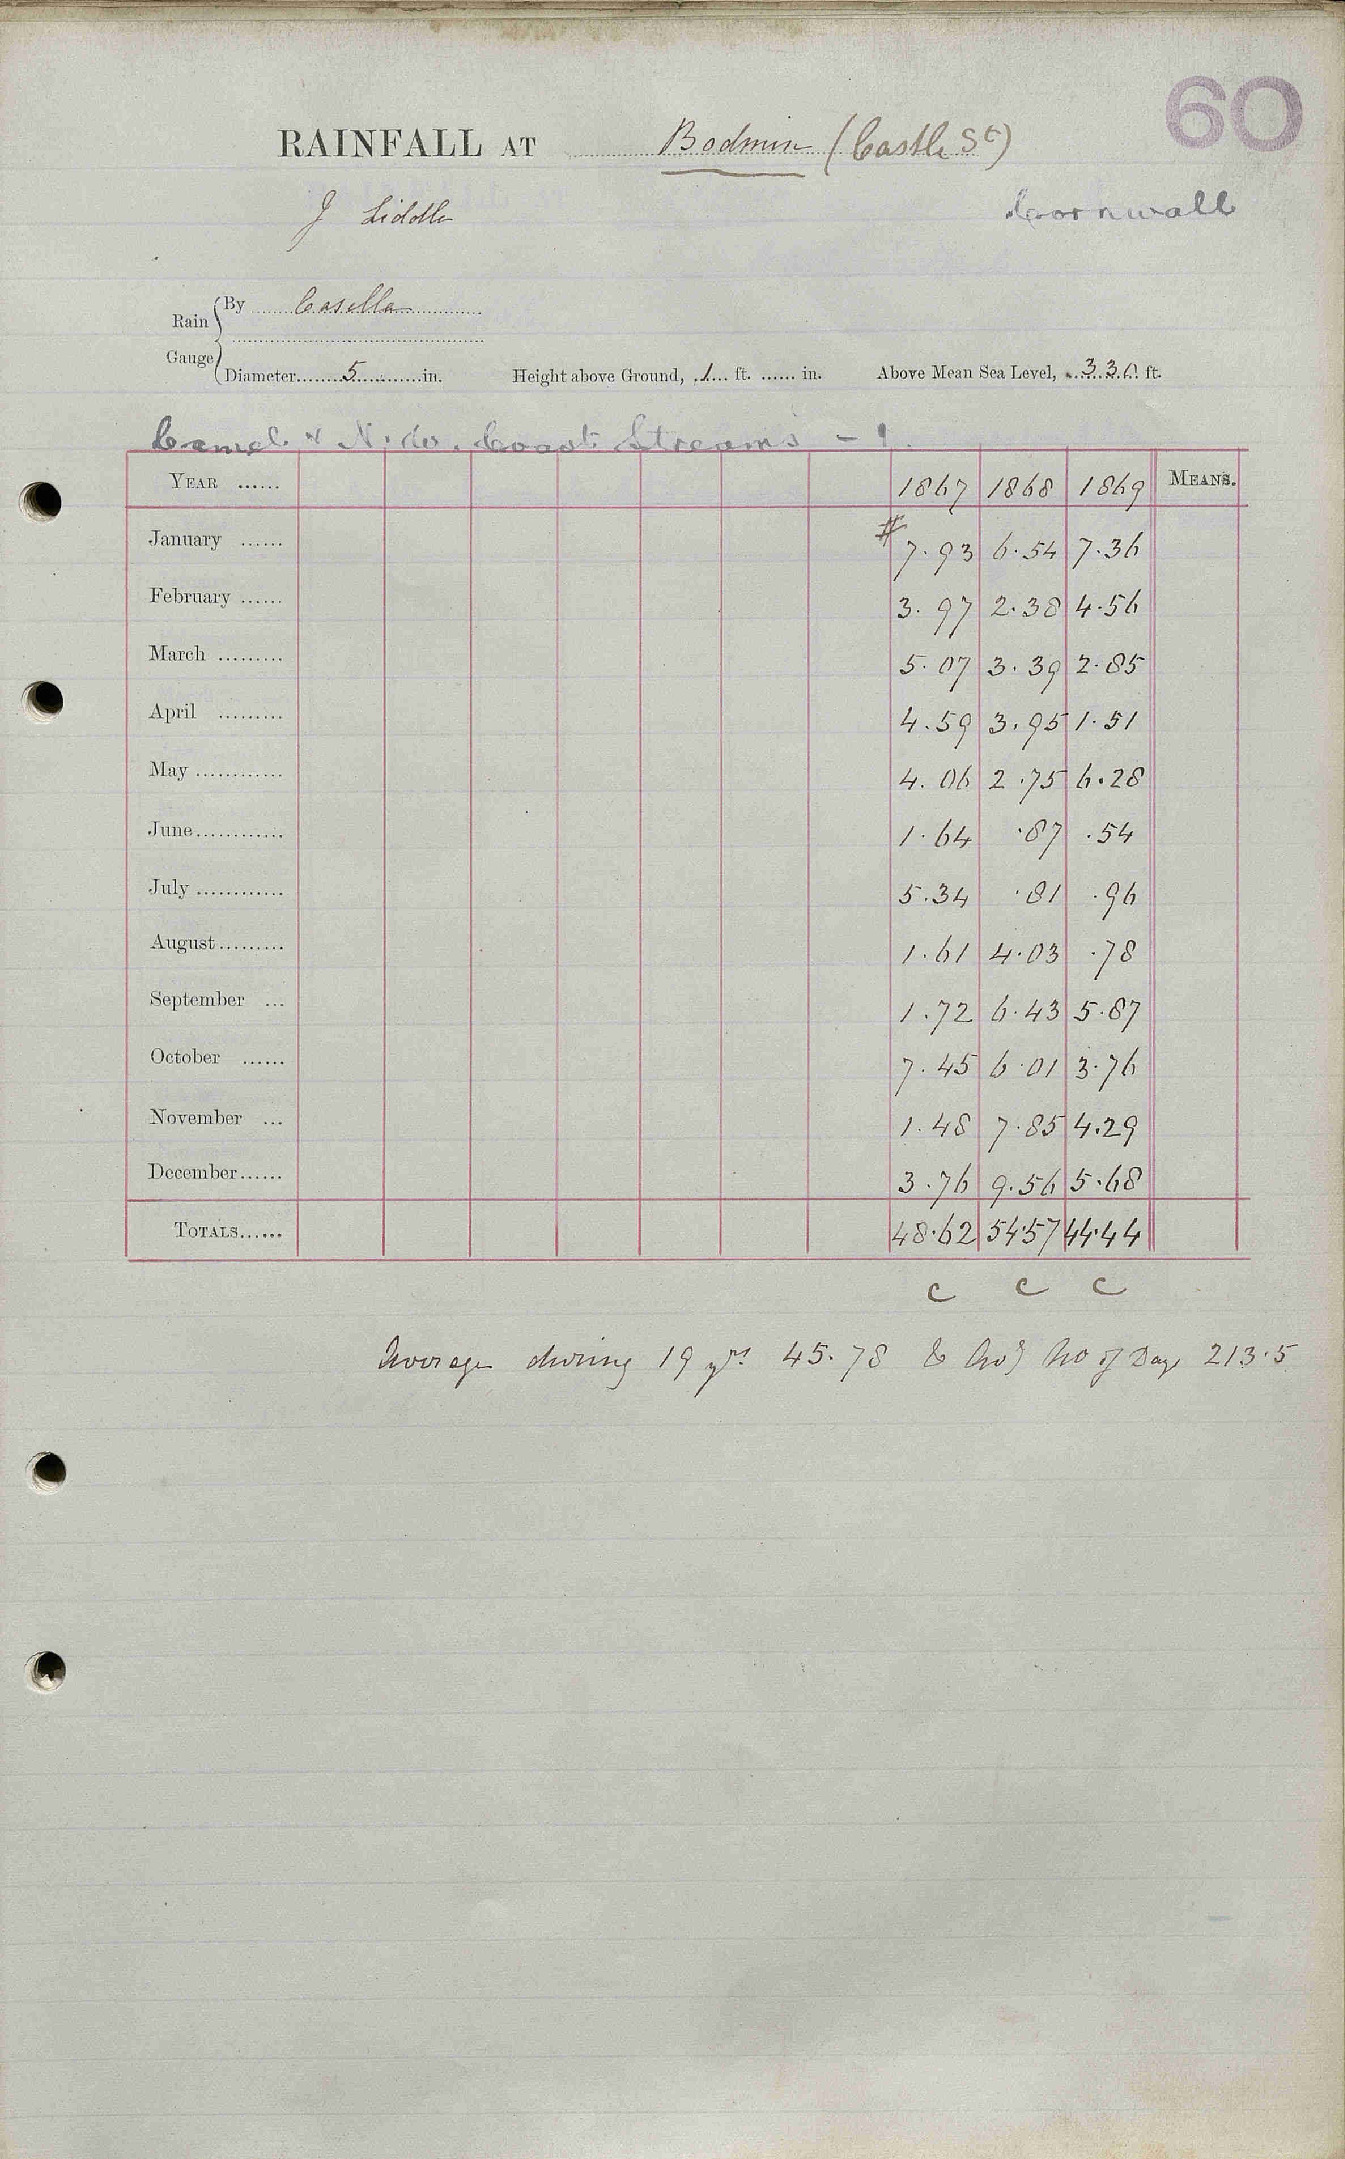 60
RAINFALL AT Bodmin (Castle St)
J Liddle
Cornwall
Rain Gauge { By Casella
Diameter........5............in. Height above Ground, .1... ft. ...... in. Above Mean Sea Level, ..330. ft.
Camel & N. Co. Coast Streams - 1.
YEAR ...... 1867 1868 1869 MEANS.
January ...... # 7.93 6.54 7.36
February ...... 3.97 2.38 4.56
March ......... 5.07 3.39 2.85
April ......... 4.59 3.95 1.51
May ............ 4.06 2.75 6.28
June............ 1.64 .87 .54
July ............ 5.34 .81 .96
August......... 1.61 4.03 .78
September ... 1.72 6.43 5.87
October ...... 7.45 6.01 3.76
November ... 1.48 7.85 4.29
December...... 3.76 9.56 5.68
TOTALS...... 48.62 54.57 44.44
c c c
Average during 19 yrs 45.78 & Avg No of Days 213.5